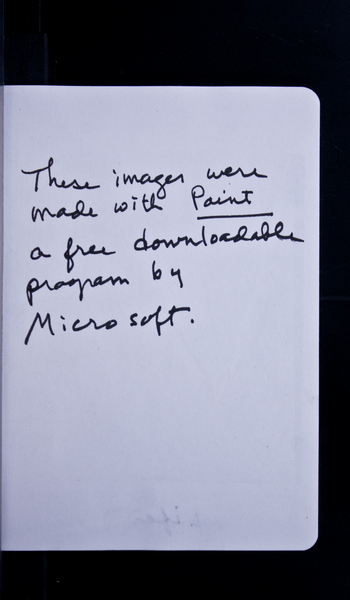 These images were
made with Paint
a free downloadable
program by
Microsoft.